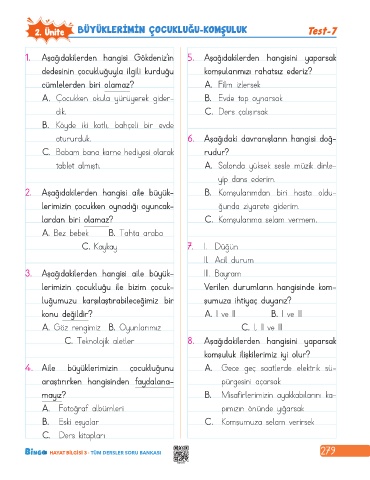 2. Ünite
BÜYÜKLERİMİN ÇOCUKLUĞU-KOMŞULUK
Test-7
1. Aşağıdakilerden hangisi Gökdeniz'in
dedesinin çocukluğuyla ilgili kurduğu
cümlelerden biri olamaz?
A. Çocukken okula yürüyerek gider-
dik.
B. Köyde iki katlı, bahçeli bir evde
otururduk.
C. Babam bana karne hediyesi olarak
tablet almıştı.
2. Aşağıdakilerden hangisi aile büyük-
lerimizin çocukken oynadığı oyuncak-
lardan biri olamaz?
A. Bez bebek B. Tahta araba
C. Kaykay
3. Aşağıdakilerden hangisi aile büyük-
lerimizin çocukluğu ile bizim çocuk-
luğumuzu karşılaştırabileceğimiz bir
konu değildir?
A. Göz rengimiz B. Oyunlarımız
C. Teknolojik aletler
4. Aile büyüklerimizin çocukluğunu
araştırırken hangisinden faydalana-
mayız?
A. Fotoğraf albümleri
B. Eski eşyalar
C. Ders kitapları
5. Aşağıdakilerden hangisini yaparsak
komşularımızı rahatsız ederiz?
A. Film izlersek
B. Evde top oynarsak
C. Ders çalışırsak
6. Aşağıdaki davranışların hangisi doğ-
rudur?
A. Salonda yüksek sesle müzik dinle-
yip dans ederim.
B. Komşularımdan biri hasta oldu-
ğunda ziyarete giderim.
C. Komşularıma selam vermem.
7. I. Düğün
II. Acil durum
III. Bayram
Verilen durumların hangisinde kom-
şumuza ihtiyaç duyarız?
A. I ve II B. I ve III
C. I, II ve III
8. Aşağıdakilerden hangisini yaparsak
komşuluk ilişkilerimiz iyi olur?
A. Gece geç saatlerde elektrik sü-
pürgesini açarsak
B. Misafirlerimizin ayakkabılarını ka-
pımızın önünde yığarsak
C. Komşumuza selam verirsek
BinGo HAYAT BİLGİSİ 3 - TÜM DERSLER SORU BANKASI
279